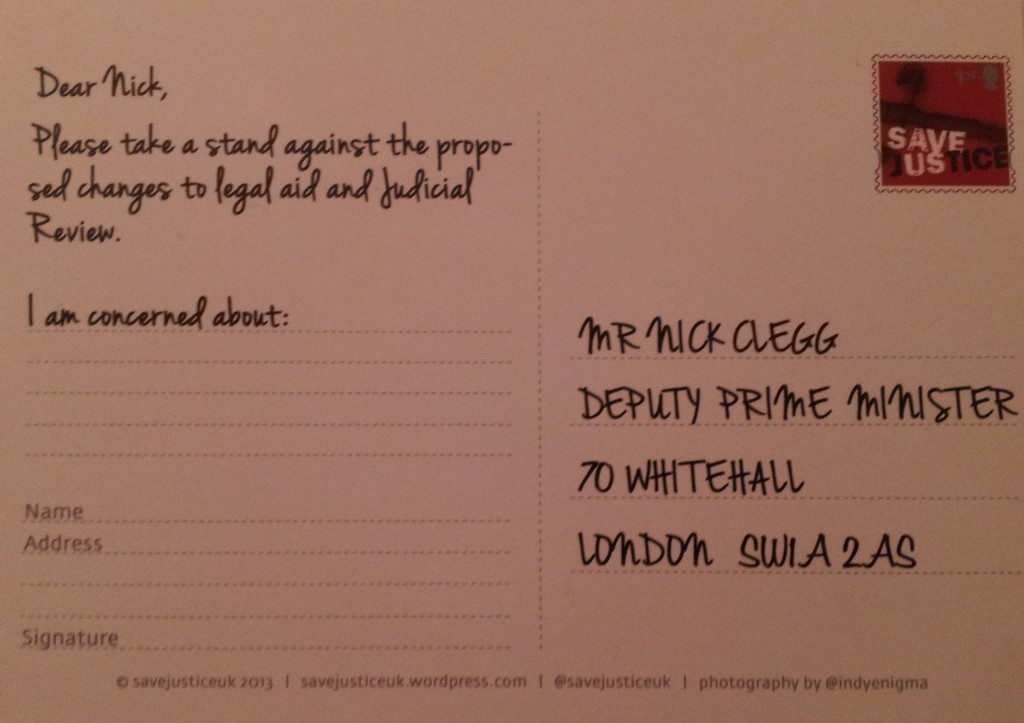 Dear Nick,
Please take a stand against the propo-
sed changes to legal aid and Judicial
Review.
I am concerned about:
Name
Address
Signature
1st
SAVE
JUSTICE
MR NICK CLEGG
DEPUTY PRIME MINISTER
70 WHITEHALL
LONDON SW1A 2AS
© savejusticeuk 2013 | savejusticeuk.wordpress.com | @savejusticeuk | photography by @indyenigma